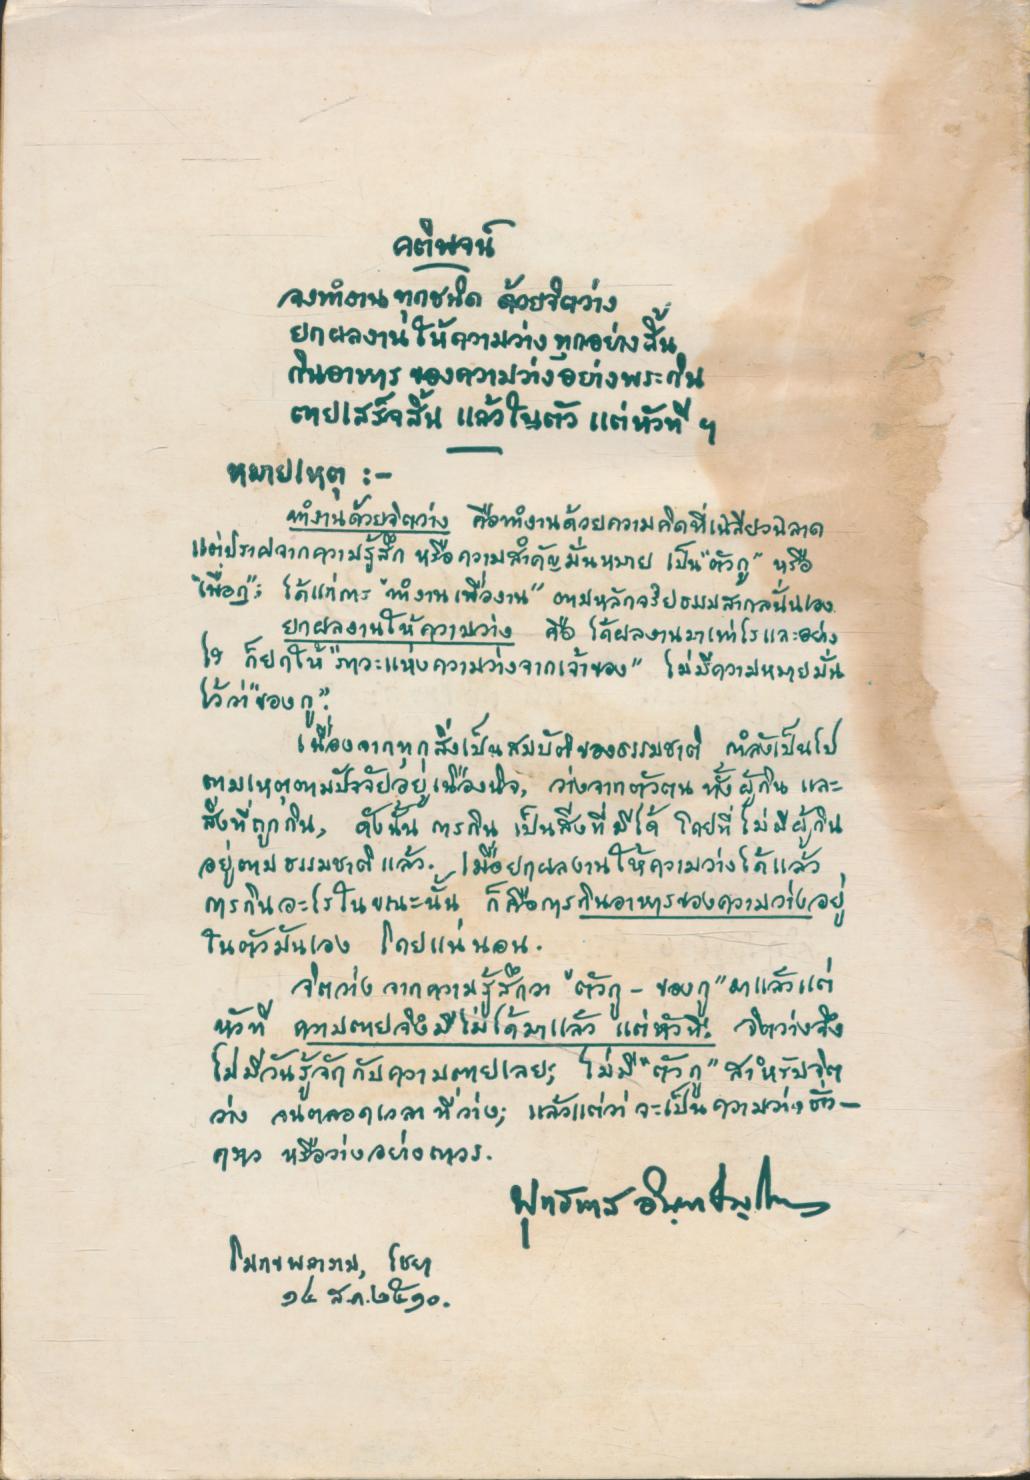 คติพจน์
จงทำงาน ทุกชนิด ด้วยจิตว่าง
ยกผลงานให้ความว่าง ทุกอย่างสิ้น
กินอาหาร ของความว่าง อย่างพระกิน
ตายเสร็จสิ้น แล้วในตัว แต่หัวที ฯ
หมายเหตุ :-
ทำงานด้วยจิตว่าง คือทำงานด้วยความคิดที่เฉลียวฉลาด
แต่ปราศจากความรู้สึก หรือความสำคัญมั่นหมาย เป็น "ตัวกู" หรือ
"เพื่อกู"; ได้แก่การ "ทำงานเพื่องาน" ตามหลักจริยธรรมสากลนั่นเอง.
ยกผลงานให้ความว่าง คือ ได้ผลงานมาเท่าไรและอย่าง
ไร ก็ยกให้ "ภาวะแห่งความว่างจากเจ้าของ" ไม่มีความหมายมั่น
ไว้ว่า "ของกู".
เนื่องจากทุกสิ่งเป็นสมบัติของธรรมชาติ กำลังเป็นไป
ตามเหตุตามปัจจัยอยู่เนืองนิจ, ว่างจากตัวตน ทั้งผู้กิน และ
สิ่งที่ถูกกิน, ดังนั้น การกิน เป็นสิ่งที่มีได้ โดยที่ไม่มีผู้กิน
อยู่ตามธรรมชาติแล้ว. เมื่อยกผลงานให้ความว่างได้แล้ว,
การกินอะไรในขณะนั้น ก็คือการกินอาหารของความว่างอยู่
ในตัวมันเอง โดยแน่นอน.
จิตว่าง จากความรู้สึกว่า "ตัวกู - ของกู" มาแล้วแต่
หัวที ความตายจึงมีไม่ได้มาแล้ว แต่หัวที. จิตว่างจึง
ไม่มีวันรู้จักกับความตายเลย; ไม่มี "ตัวกู" สำหรับจิต
ว่าง จนตลอดเวลาที่ว่าง; แล้วแต่ว่า จะเป็นความว่างชั่ว-
คราว หรือว่างอย่างถาวร.
พุทธทาส อินฺทปญฺโญ
โมกขพลาราม, ไชยา
๑๔ ส.ค. ๒๕๑๐.